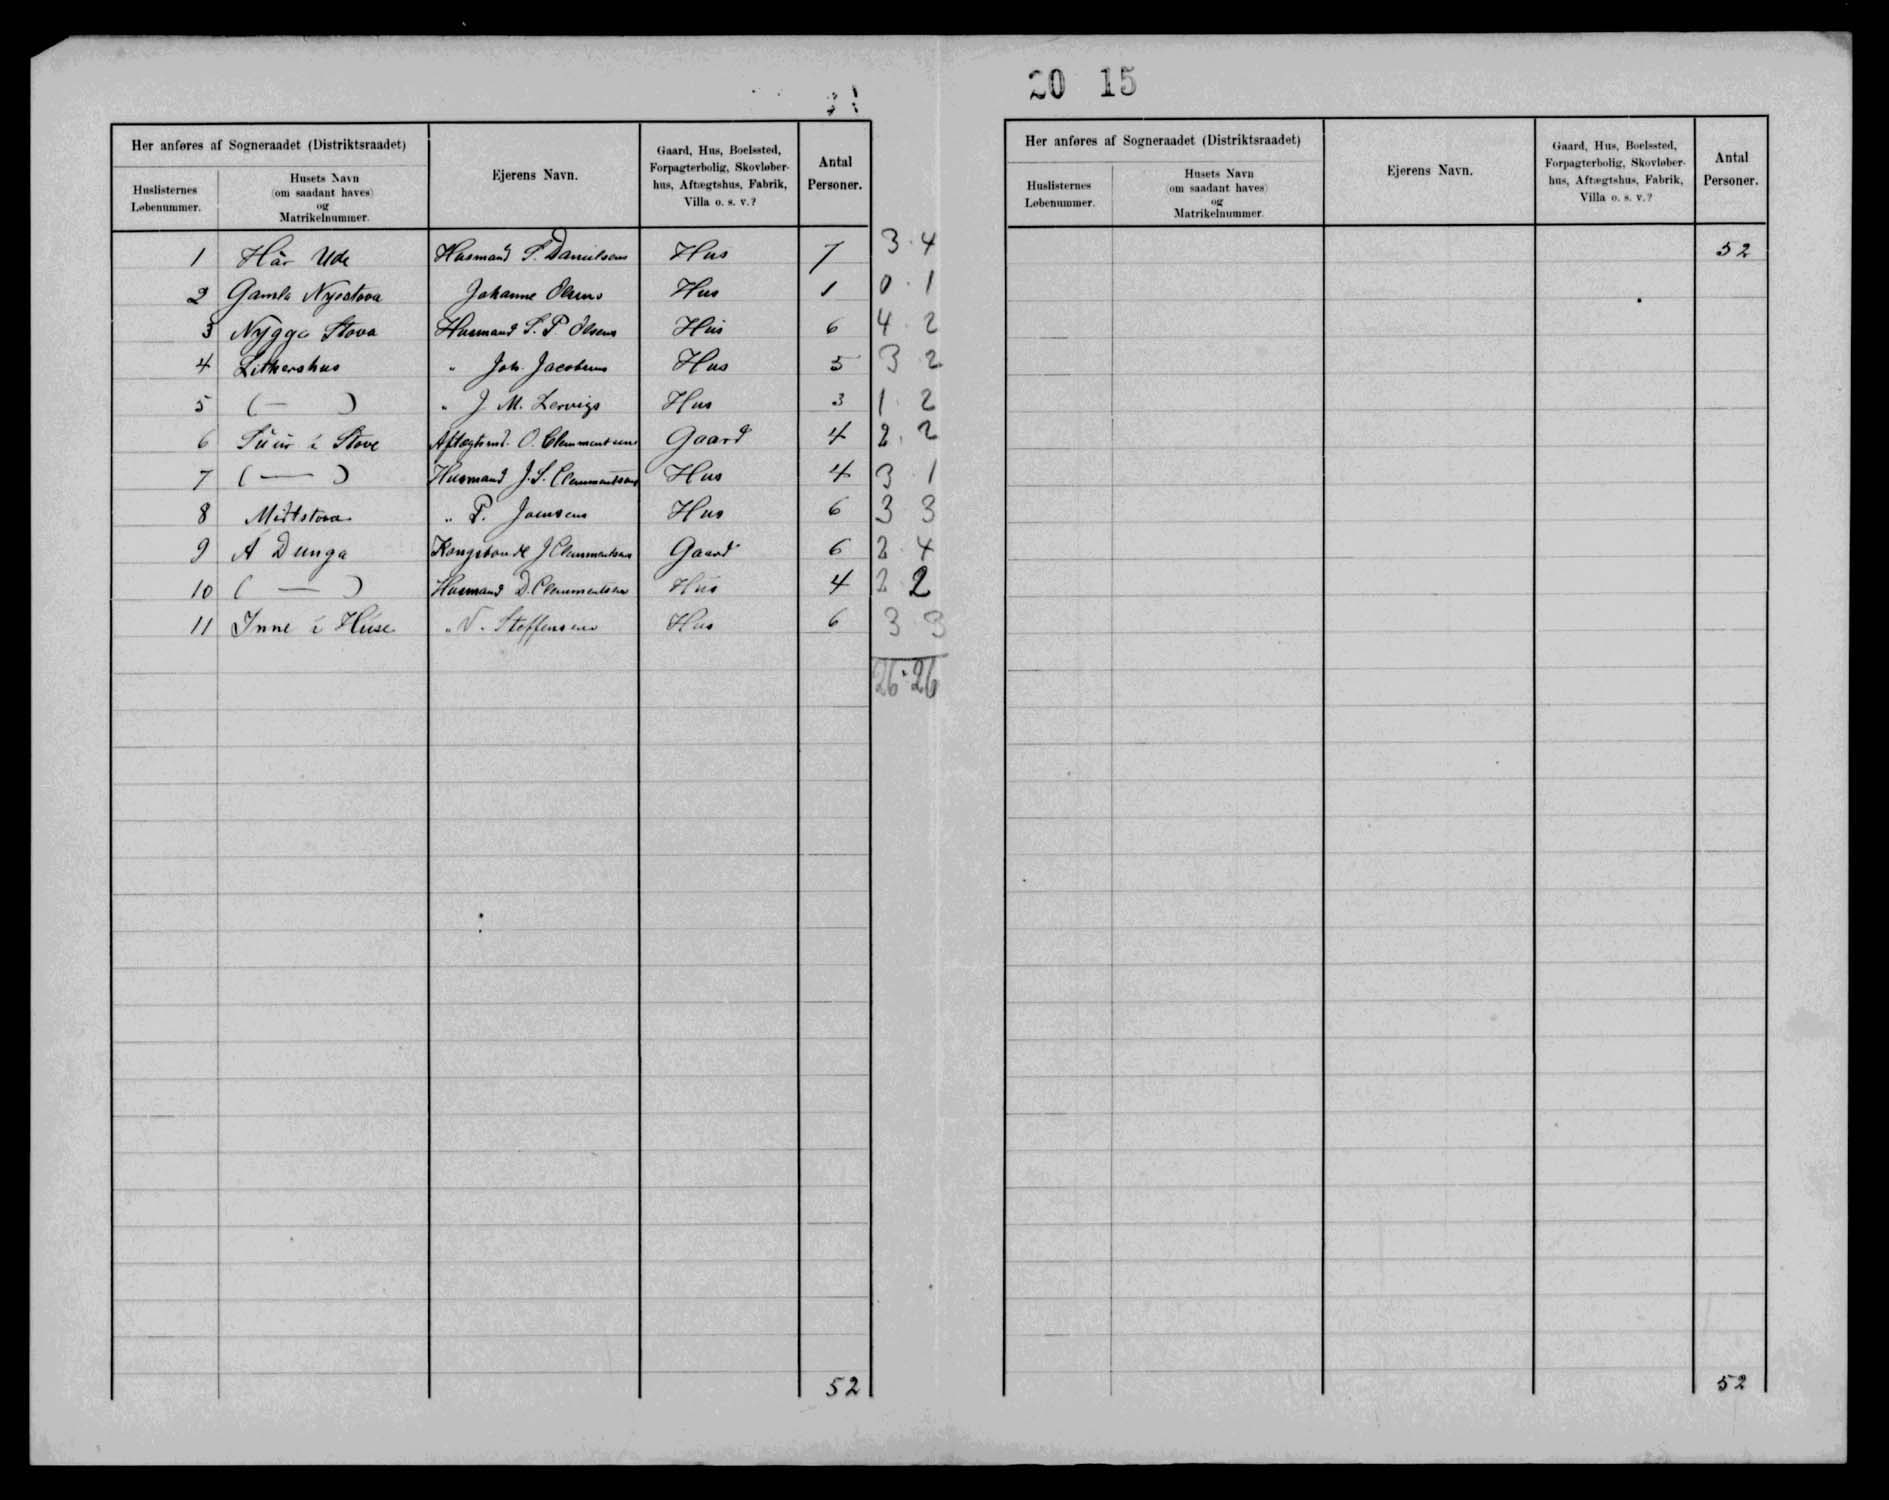 Her anføres af Sogneraadet (Distriktsraadet)
Huslisternes Løbenummer.
Husets Navn (om saadant haves) og Matrikelnummer.
Ejerens Navn.
Gaard, Hus, Boelssted, Forpagterbolig, Skovløberhus, Aftægtshus, Fabrik, Villa o. s. v.?
Antal Personer.
1 Hâr Ude Husmand S. Danielsens Hus 7 3 · 4
2 Gamla Nysstova Johanne Olsens Hus 1 0 · 1
3 Nÿgga Stova Husmand S. P Olsens Hus 6 4 · 2
4 " Joh. Jacobsens Hus 5 3 2
5 ( — ) " J M. Lervigs Hus 3 1 · 2
6 i Stove Aftægtsmd. O. Clemmentsens Gaard 4 2 · 2
7 ( — ) Husmand J. S. Clemmentsens Hus 4 3 · 1
8 Midtstova " P. Joensens Hus 6 3 3
9 A Dunga Kongsbonde J Clemmentsens Gaard 6 2 · 4
10 ( — ) Husmand D. Clemmentsens Hus 4 2 2
11 Inne i Húse " Steffensens Hus 6 3 3
26 · 26
52
20 15
Her anføres af Sogneraadet (Distriktsraadet)
Huslisternes Løbenummer.
Husets Navn (om saadant haves) og Matrikelnummer.
Ejerens Navn.
Gaard, Hus, Boelssted, Forpagterbolig, Skovløberhus, Aftægtshus, Fabrik, Villa o. s. v.?
Antal Personer.
52
52